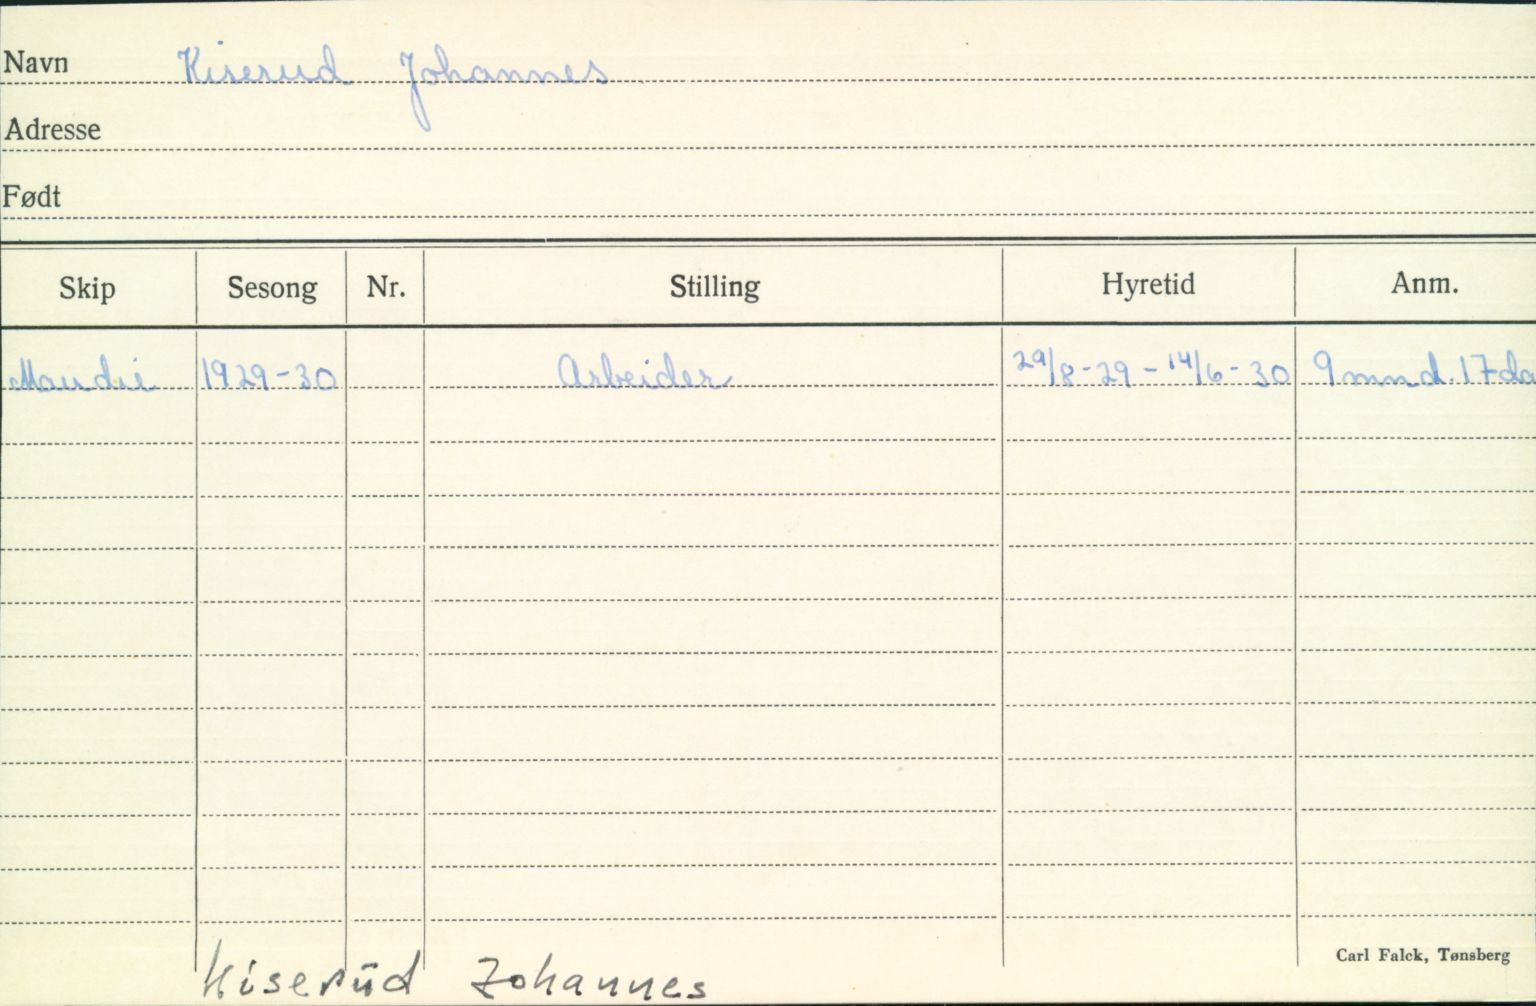 Navn Kiserud Johannes
Adresse
Født
Skip Sesong Nr. Stilling Hyretid Anm.
Maudie 1929-30 Arbeider 29/8-29 - 14/6-30 9 mnd. 17 da
Carl Falck, Tønsberg
Kiserud Johannes